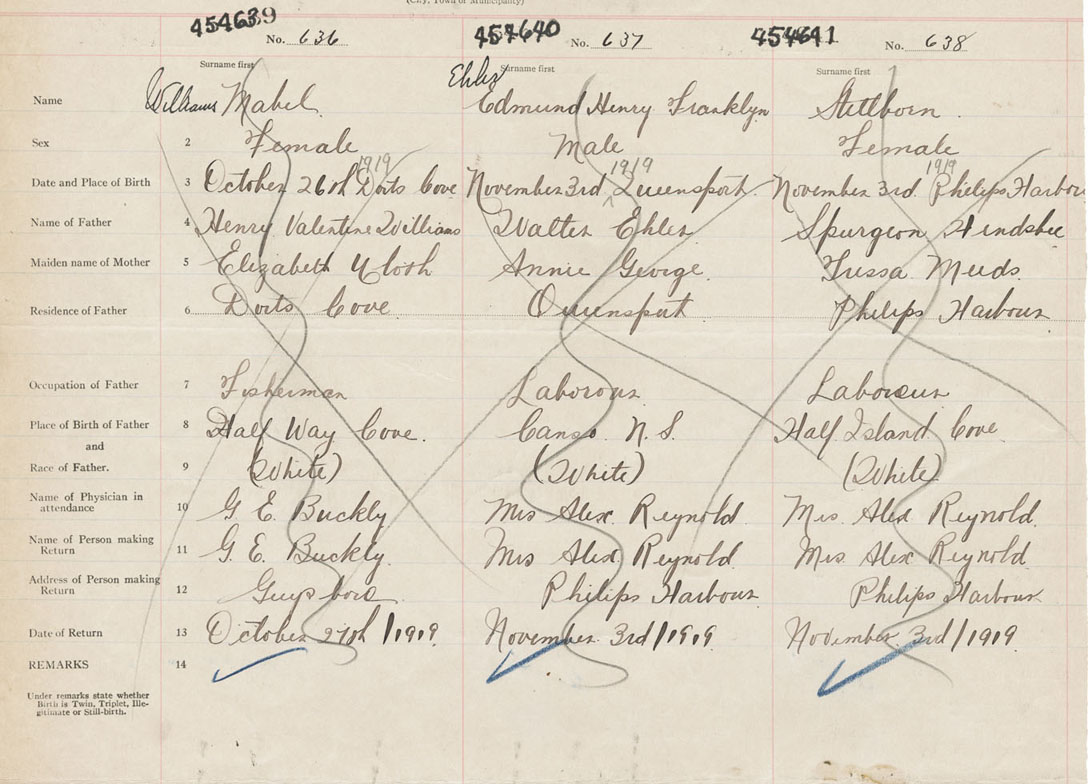 (City, Town or Municipality)
454639 454640 454641
No. 636 No. 637 No. 638
Surname first Surname first Surname first
Ehler
Name Williams Mabel Edmund Henry Franklyn Stillborn
Sex 2 Female Male Female
1919 1919 1919
Date and Place of Birth 3 October 26th Dorts Cove November 3rd Queensport November 3rd Philips Harbour
Name of Father 4 Henry Valentine Williams Walter Ehler Spurgeon Hendsbee
Maiden name of Mother 5 Elizabeth Annie George Meeds
Residence of Father 6 Dorts Cove Queensport Philips Harbour
Occupation of Father 7 Fisherman Laborour Laborour
Place of Birth of Father 8 Half Way Cove. Canso N.S. Half Island Cove
and
Race of Father. 9 (White) (White) (White)
Name of Physician in
attendance 10 G E. Buckly Mrs Alex Reynold Mrs Alex Reynold.
Name of Person making
Return 11 G. E. Buckly Mrs Alex Reynold. Mrs Alex Reynold
Address of Person making
Return 12 Guysboro Philips Harbour Philips Harbour
Date of Return 13 October 27th/1919 November 3rd/1919 November 3rd/1919
REMARKS 14
Under remarks state whether
Birth is Twin, Triplet, Ille-
gitimate or Still-birth.